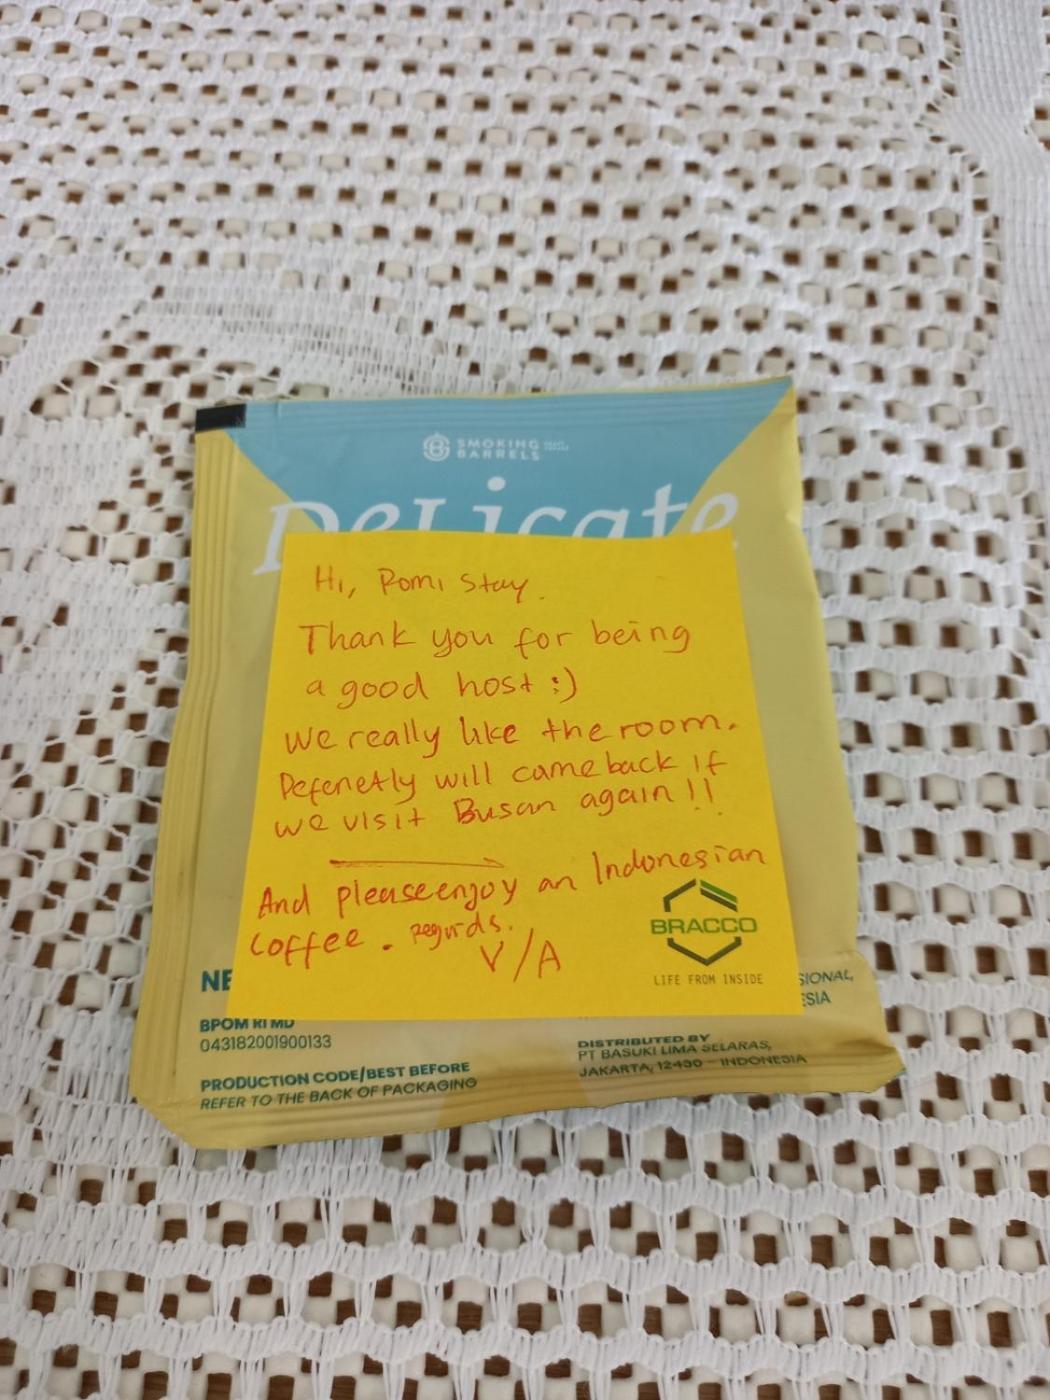 SMOKING
BARRELS
DeLicate
Hi, Pomi Stay.
Thank you for being
a good host :)
We really like the room.
Defenetly will come back if
we visit Busan again!!
And please enjoy an Indonesian
Coffee. regards.
V/A
BRACCO
LIFE FROM INSIDE
NE
SIONAL,
ESIA
BPOM RI MD
043182001900133
PRODUCTION CODE/BEST BEFORE
REFER TO THE BACK OF PACKAGING
DISTRIBUTED BY
PT BASUKI LIMA SELARAS,
JAKARTA, 12430 - INDONESIA